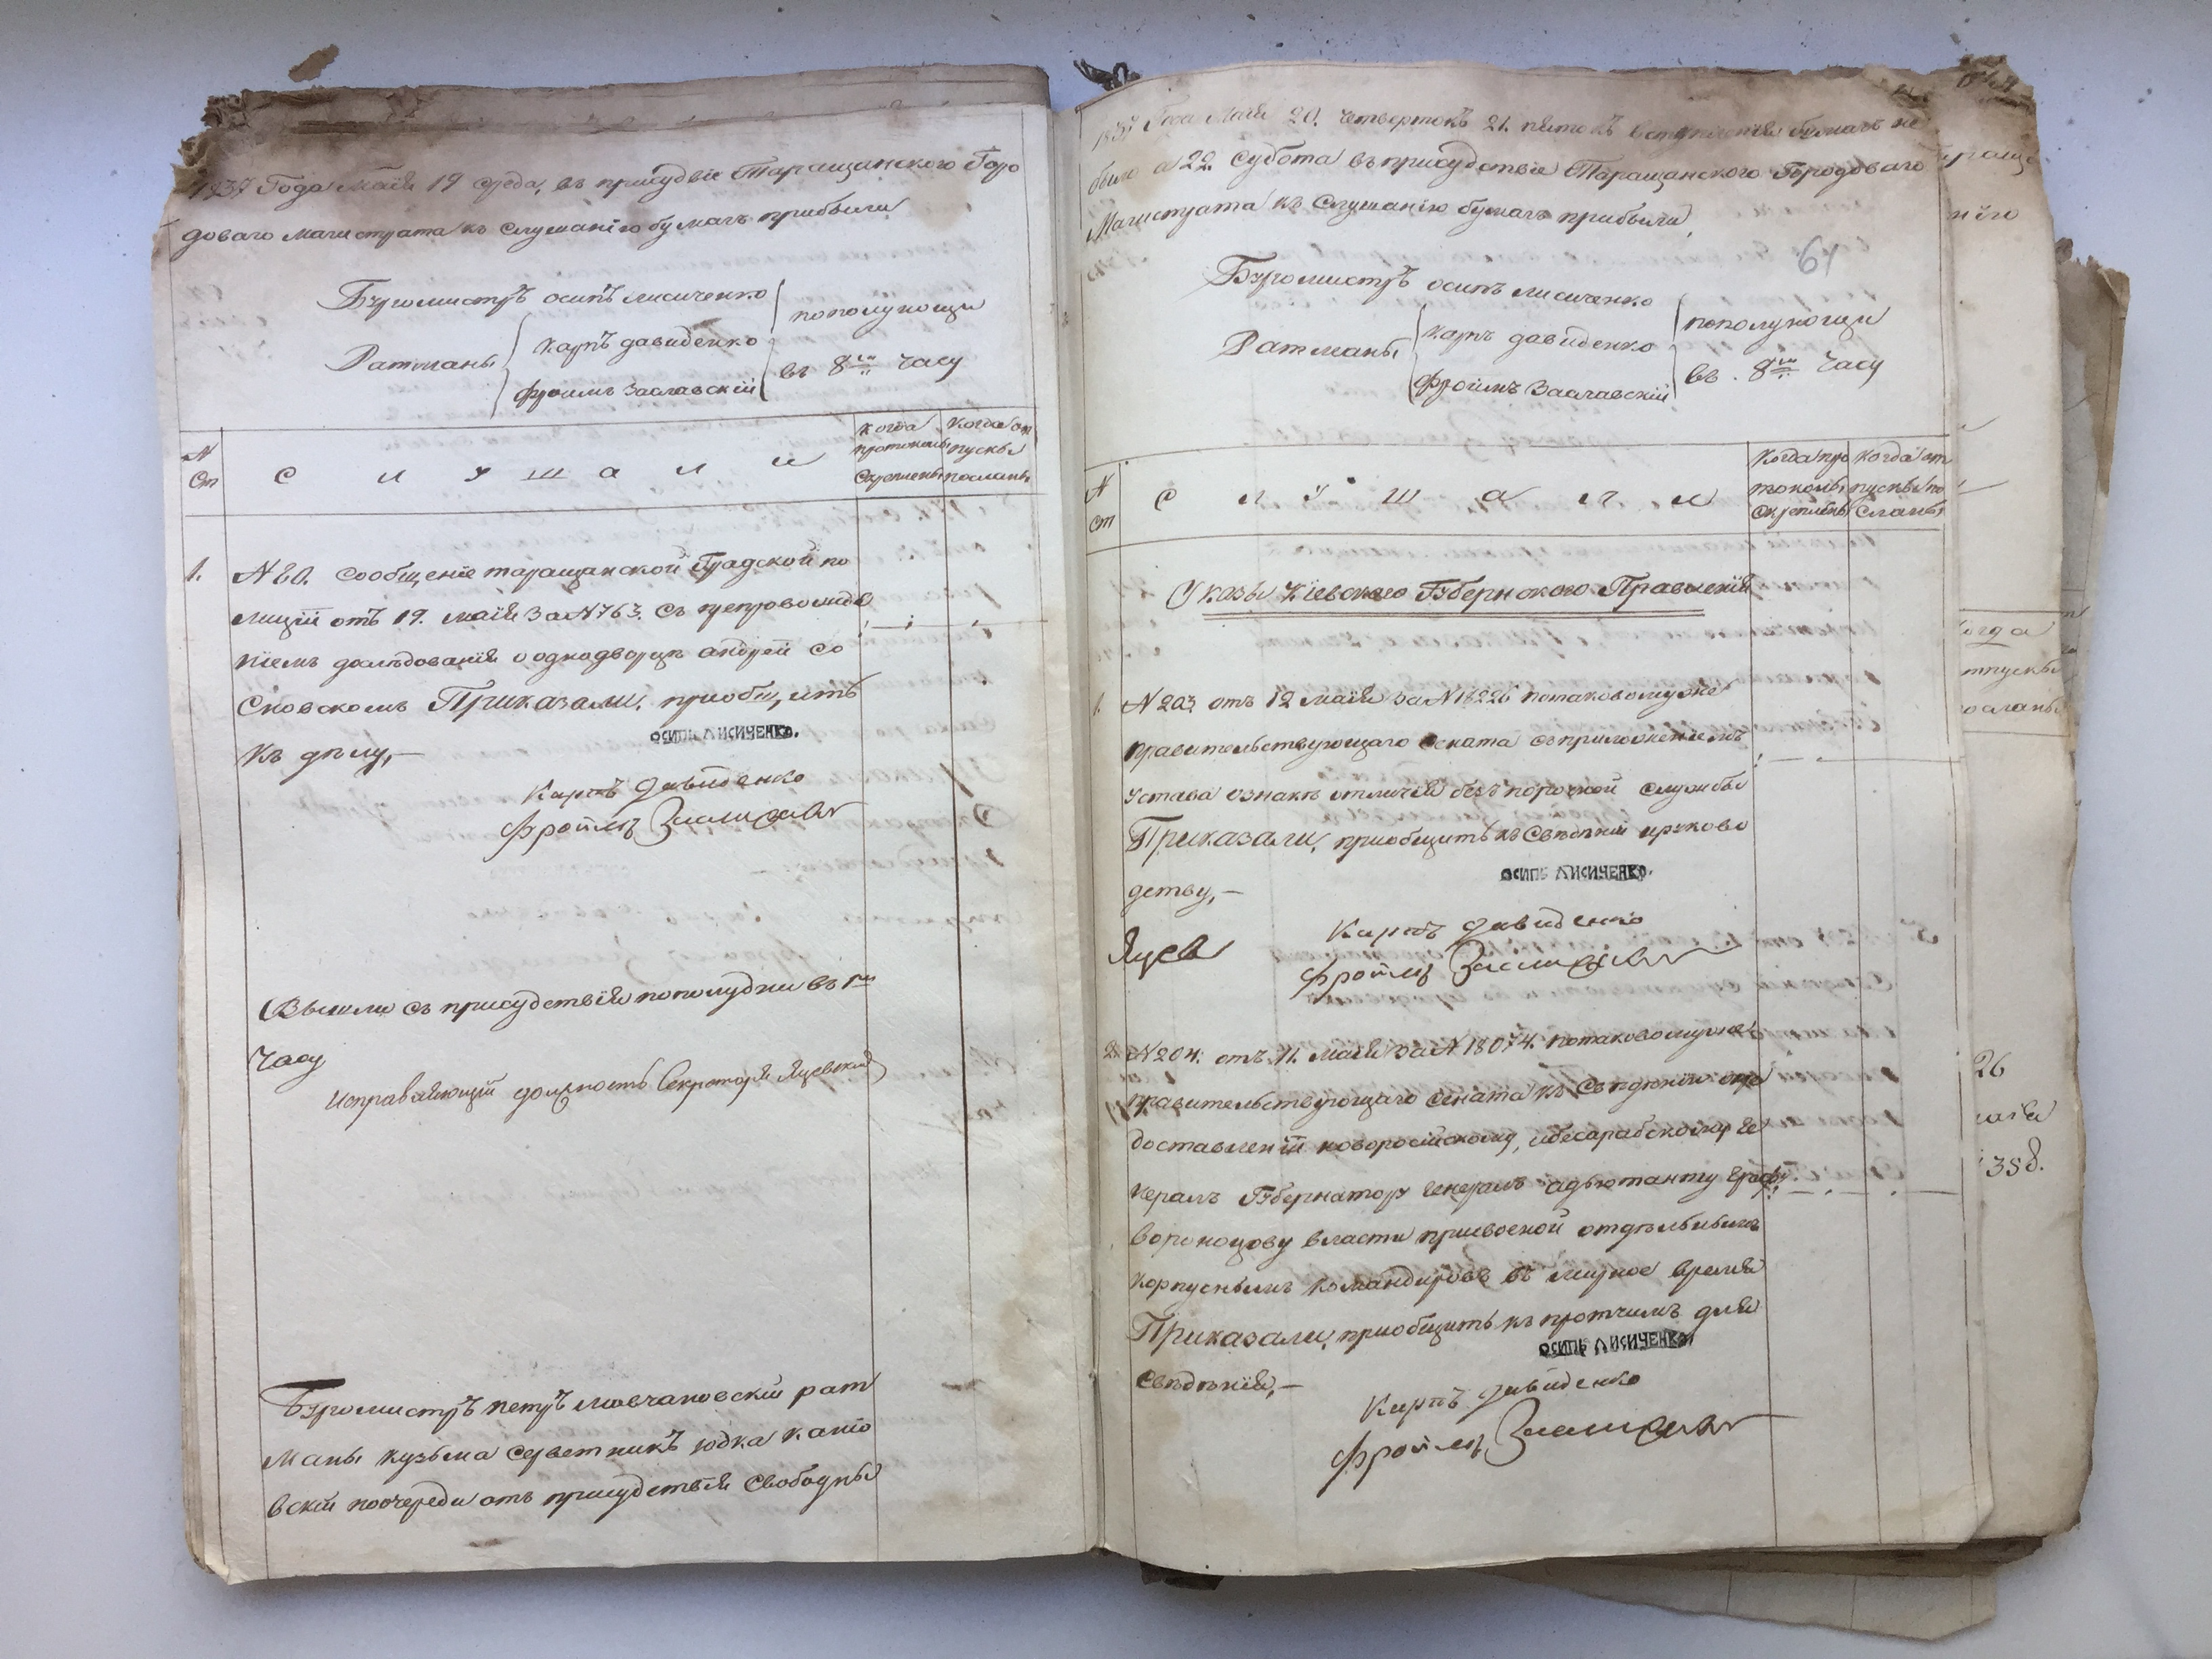 1837 Года Маія 19 среда, въ присудвіе Таращанского Горо
доваго магистрата къ слушанію бумагъ прибыли
Бургомистръ осипъ лисиченко
Ратманы
карпъ давиденко
фроимъ Заславскій
пополуночи
въ 8мъ часу
№
Ст
С л у ш а л и
когда
протоколы
Скреплены
Когда от
пуски
посланы
1.
№ 80. Сообщеніе таращанской Градской по
лиціи отъ 19. маія За №763. съ препровожде
ніемъ дослѣдованія о однодворцѣ андрей со
сновскомъ Приказали, приобщить
къ дѣлу,—
ОСИПЪ ЛИСИЧЕНКО.
Карпъ Давиденко
Фроимъ Заславскі
Вышли съ присудствія пополудни въ 1мъ
Часу
Исправляющій должность Секретаря Яцевскій
Бургомистръ петръ мовчановскій рат
маны кузьма серветникъ юдка каню
вскій поочереди отъ присудствія Свободны
1837 Года Маія 20. четвертокъ 21. пятокъ вступленія бумагъ не
было а 22. Субота въ присудствіе Таращанского Городоваго
Магистрата къ Слушанію бумагъ прибыли,
64
Бургомистръ осипъ лисиченко
Ратманы
карпъ давиденко
фроимъ Заславскій
пополуночи
въ. 8мъ Часу
№
Ст
С л у ш а л и
Когда про
токолы
Скреплены
когда от
пуски по
сланы
Указы Кіевского Губернского Правленія
1.
№ 203 отъ 12 маія За №18226 потаковомуже
правительствующаго сената съ приложеніемъ
устава ознакѣ отличія безъ порочной службы
Приказали, приобщить къ Свѣденію ируково
детву,—
ОСИПЪ ЛИСИЧЕНКО.
Карпъ Давиденко
Яцев
Фроимъ Заславскі
2.
№ 204. отъ 11. маія За № 18074. потаковомуже
правительствующаго Сената къ Свѣденію опре
доставленіи новоросійскому, ибесарабскому Ге
нералъ Губернатору Генералъ адъютанту Графу
Воронцову власти присвоеной отдѣльнымъ
корпуснымъ командировъ въ мирное время
Приказали, приобщить къ протчимъ для
ОСИПЪ ЛИСИЧЕНКО.
Свѣдѣнія,—
Карпъ Давиденко
Фроимъ Заславскі
ніи
огда
тпуски
осланы
26
маія
358.